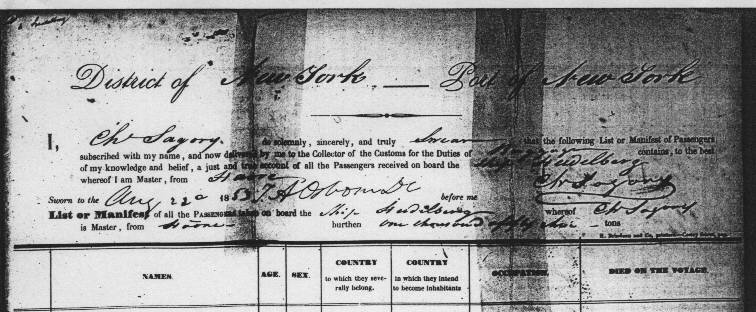 District of New York — Port of New York
I, Chs Sagory do solemnly, sincerely, and truly swear that the following List or Manifest of Passengers
subscribed with my name, and now delivered by me to the Collector of the Customs for the Duties of New York contains, to the best
of my knowledge and belief, a just and true account of all the Passengers received on board the Ship Heidelberg
whereof I am Master, from Havre Chs Sagory
Sworn to the Aug 22d 1853 before me
List or Manifest of all the PASSENGERS taken on board the Ship Heidelberg whereof Chs Sagory
is Master, from Havre burthen one thousand tons
NAMES. AGE. SEX. COUNTRY to which they severally belong. COUNTRY in which they intend to become inhabitants OCCUPATION. DIED ON THE VOYAGE.